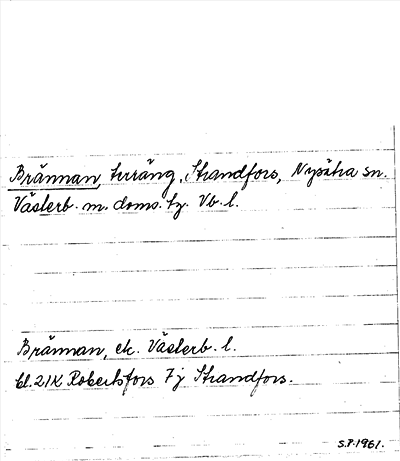 Brännan, terräng, Strandfors, Nysätra sn.
Västerb. m. doms. tg. Vb. l.
Brännan, ek. Västerb. l.
bl. 21K Robertsfors 7j Strandfors.
S.P. 1961.